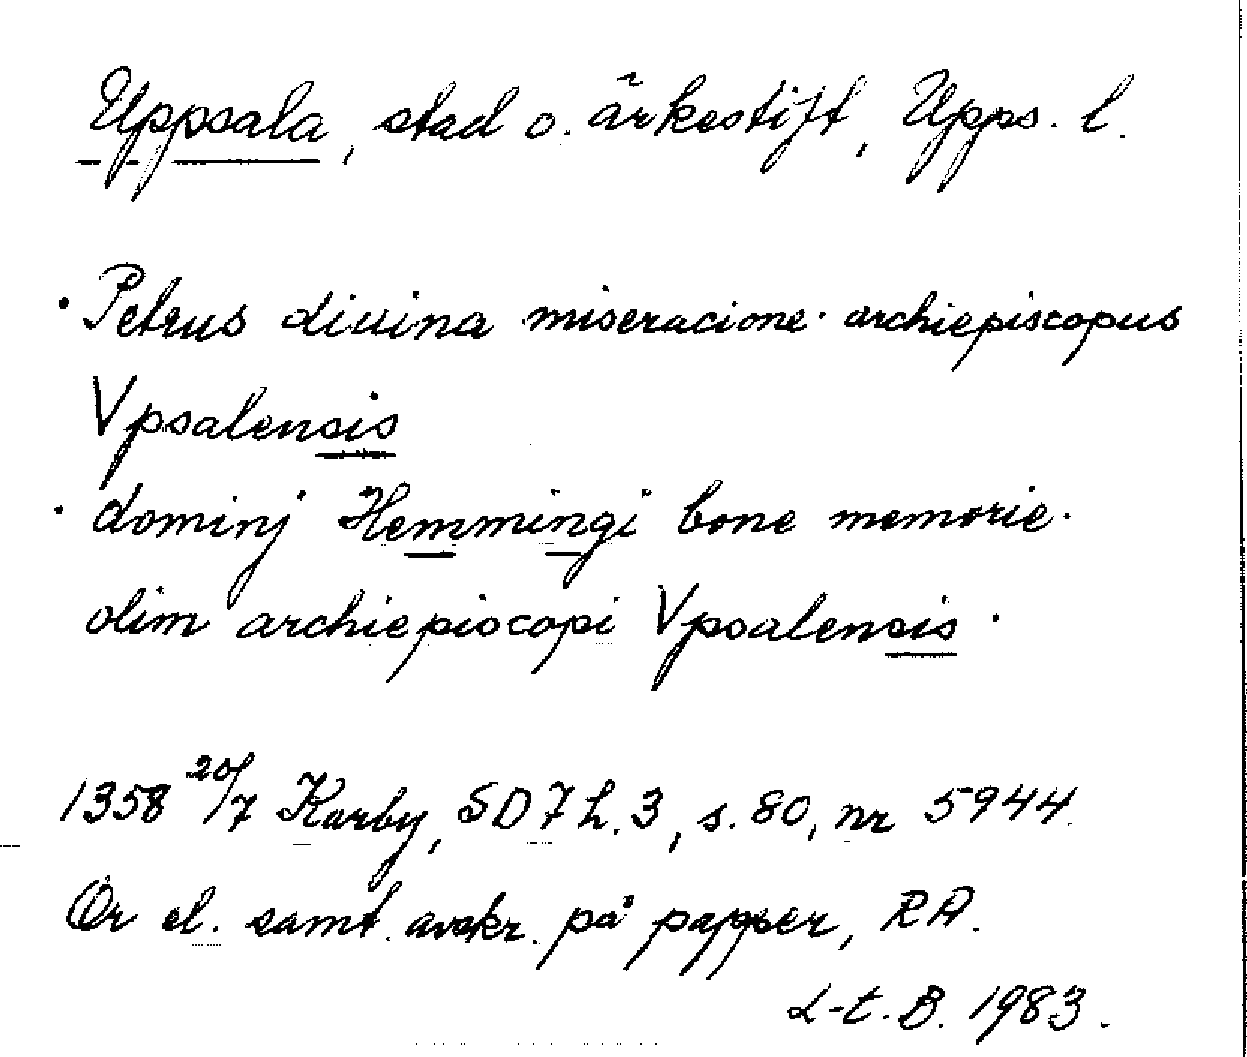 Uppsala, stad o. ärkestift, Upps. l.
· Petrus diuina miseracione · archiepiscopus
Vpsalensis
· dominj Hemmingi bone memorie ·
olim archiepiscopi Vpsalensis ·
1358 20/7 Karby, SD 7 h. 3, s. 80, nr 5944.
Or el. samt. avskr. på papper, RA.
L-t. B. 1983.